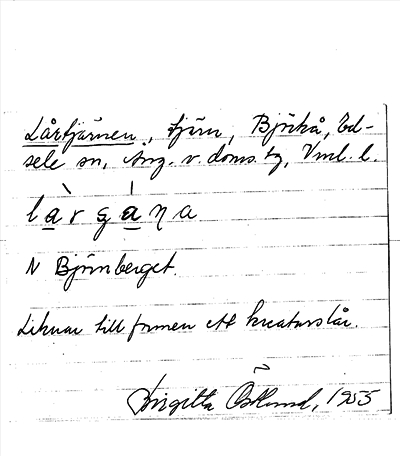 Lårtjärnen, tjärn, Björkå, Ed-
sele sn, Ång. v. doms. tg, Vml. l.
làrgána
N Björnberget.
Liknar till formen ett kreaturslår.
Birgitta Östlund, 1955